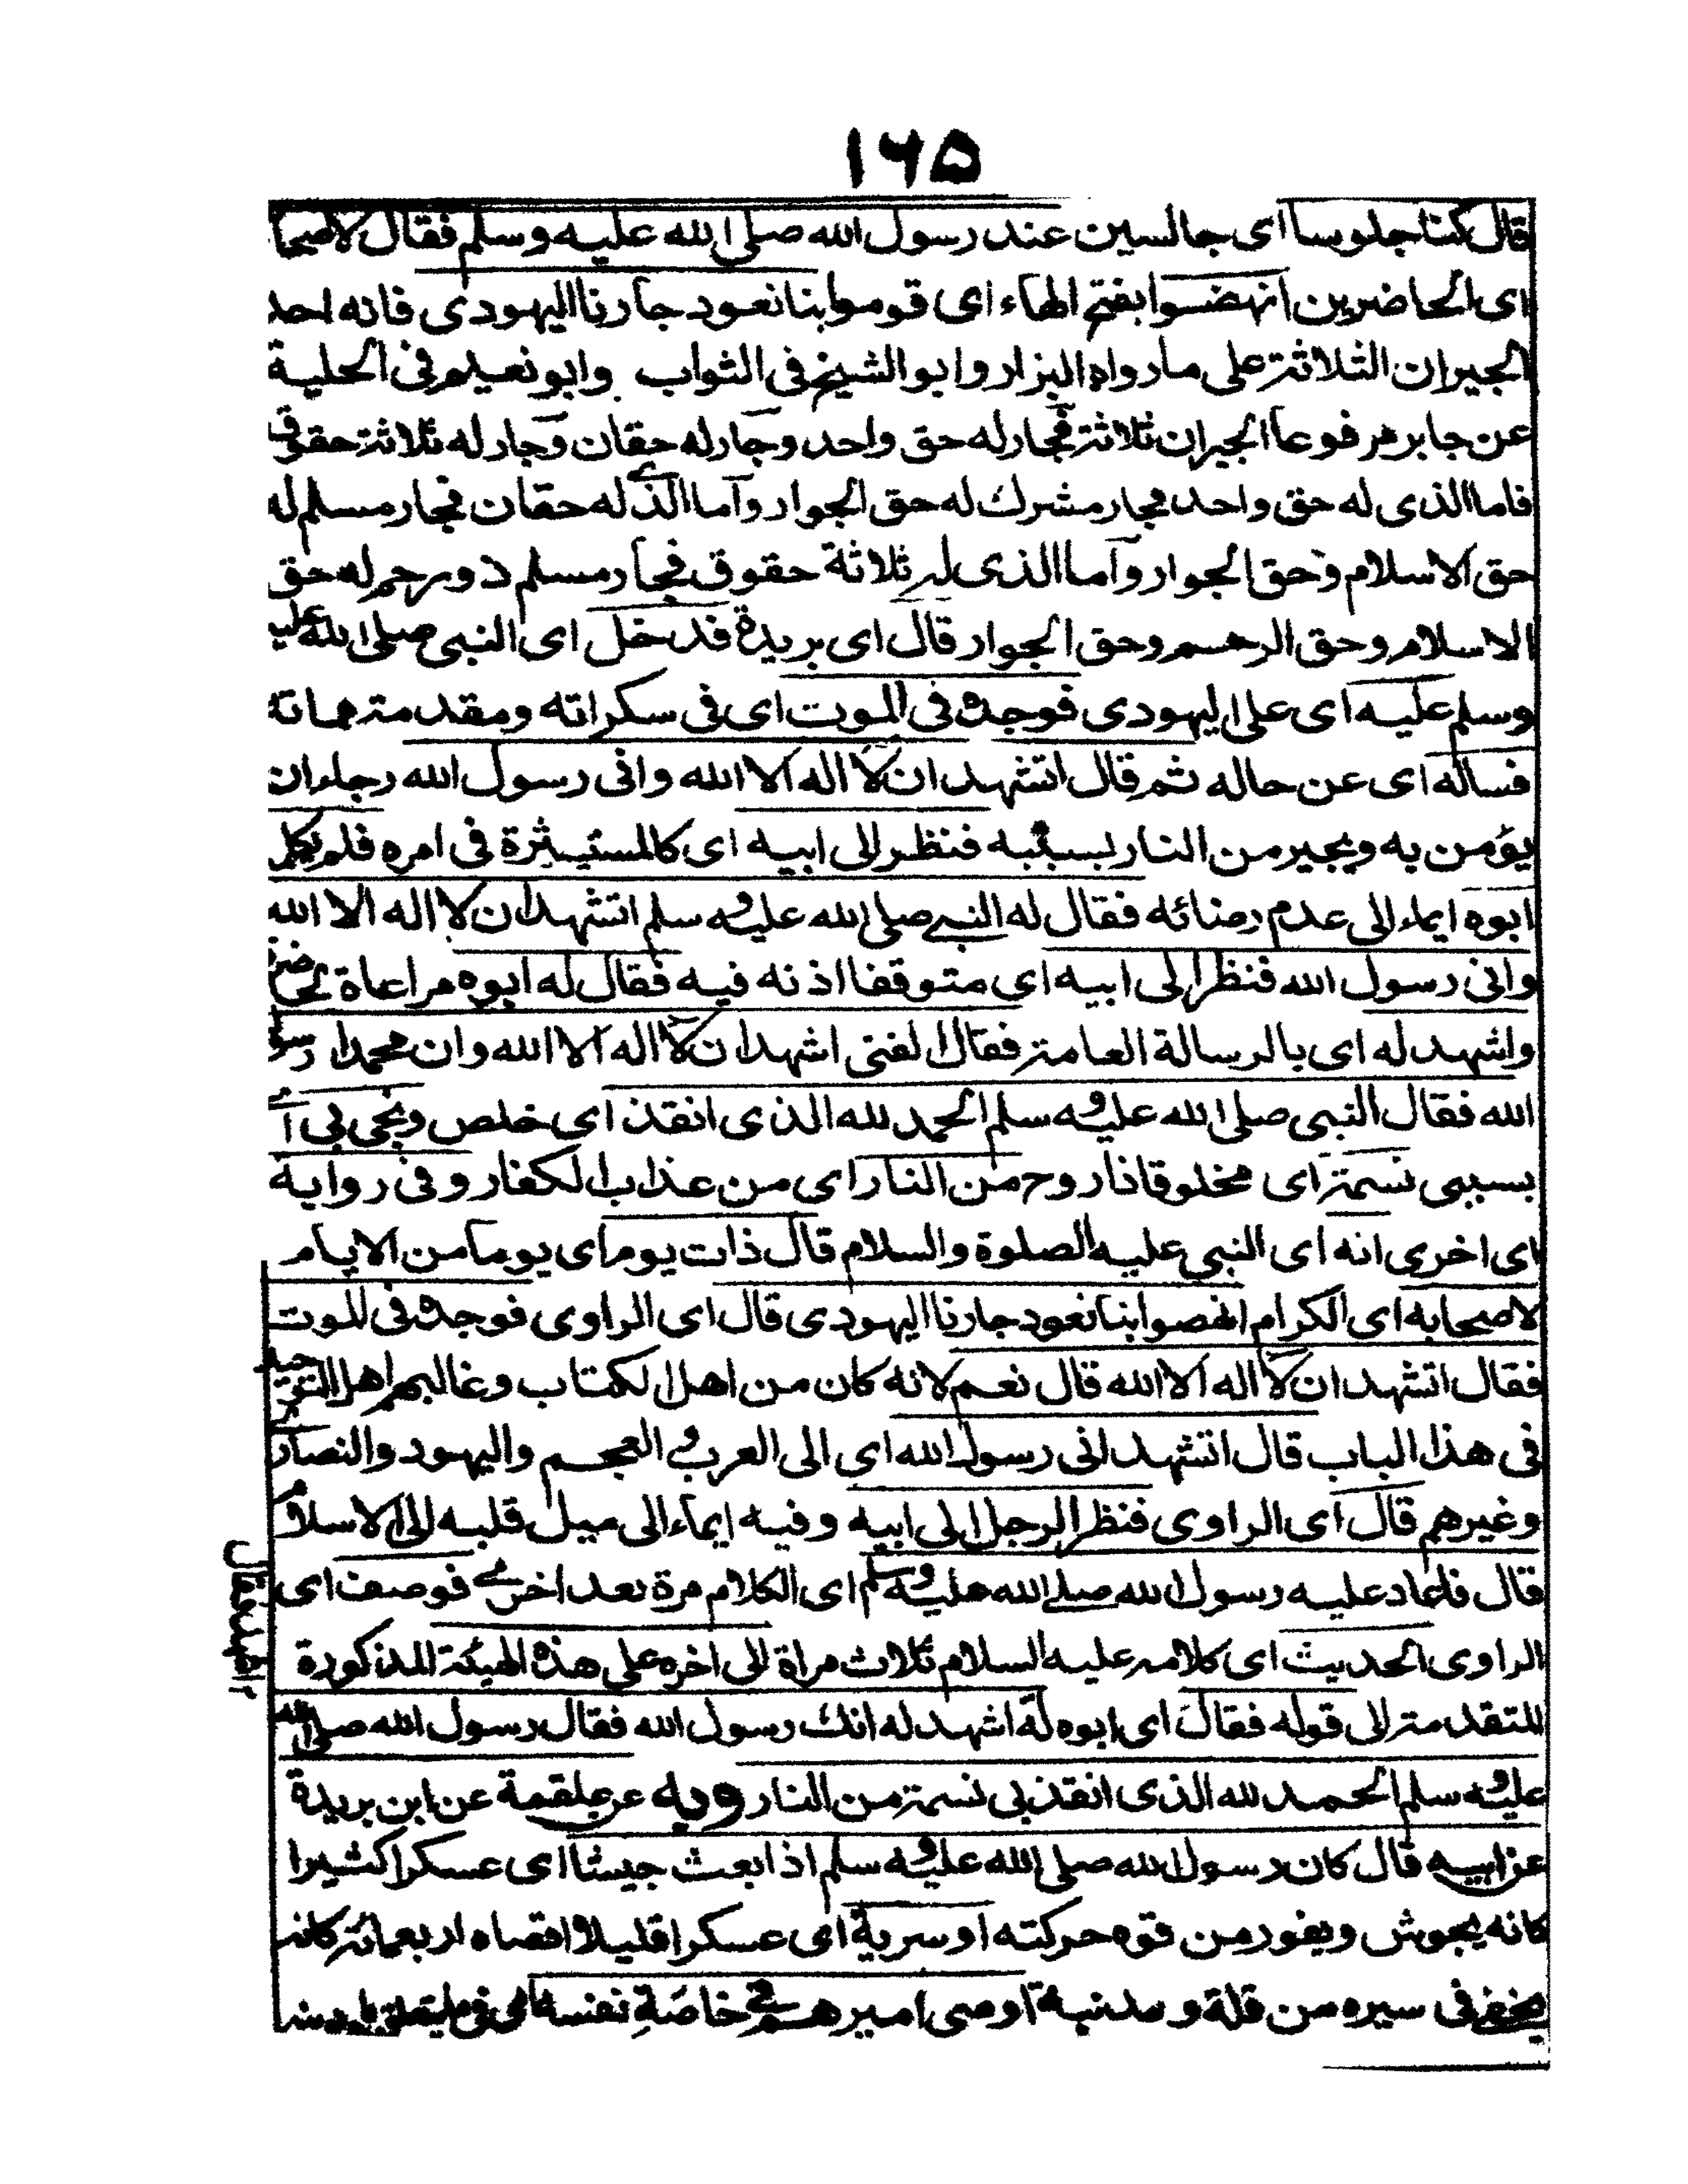 ١٦٥
قال كنا جلوسا اى جالسين عند رسول الله صلى الله عليه وسلم فقال لاصحا
اى الحاضرين انهضوا بفتح الهاء اى قوموا بنا نعود جارنا اليهودى فانه احد
الجيران الثلاثة على ما رواه البزار وابو الشيخ فى الثواب وابو نعيم فى الحلية
عن جابر مرفوعا الجيران ثلاثة فجار له حق واحد وجار له حقان وجار له ثلاثة حقوق
فاما الذى له حق واحد فجار مشرك له حق الجوار وآما الذى له حقان فجار مسلم له
حق الاسلام وحق الجوار وآما الذى له ثلاثة حقوق فجار مسلم ذو رحم له حق
الاسلام وحق الرحم وحق الجوار قال اى بريدة فدخل اى النبى صلى الله عليه
وسلم عليه اى على اليهودى فوجده فى الموت اى فى سكراته ومقدمة مماته
فساله اى عن حاله ثم قال اتشهد ان لآ اله الا الله وانى رسول الله رجاء ان
يؤمن به ويجير من النار بسببه فنظر الى ابيه اى كالمستيثرة فى امره فلم يكلم
ابوه ايماء الى عدم رضائه فقال له النبى صلى الله عليه وسلم اتشهد ان لا اله الا الله
وانى رسول الله فنظر الى ابيه اى متوقفا اذنه فيه فقال له ابوه مراعاة
واشهد له اى بالرسالة العامة فقال الفتى اشهد ان لآ اله الا الله وان محمدا رسول
الله فقال النبى صلى الله عليه وسلم الحمد لله الذى انقذ اى خلص ونجى بى اى
بسببى نسمة اى مخلوقا ذا روح من النار اى من عذاب الكفار وفى رواية
اى اخرى انه اى النبى عليه الصلوة والسلام قال ذات يوم اى يوما من الايام
لاصحابه اى الكرام انهضوا بنا نعود جارنا اليهودى قال اى الراوى فوجده فى الموت
فقال اتشهد ان لآ اله الا الله قال نعم لانه كان من اهل الكتاب وغالبهم اهل التوحيد
فى هذا الباب قال اتشهد انى رسول الله اى الى العرب والعجم واليهود والنصارى
وغيرهم قال اى الراوى فنظر الرجل الى ابيه وفيه ايماء الى ميل قلبه الى الاسلام
قال فاعاد عليه رسول الله صلى الله عليه وسلم اى الكلام مرة بعد اخرى فوصف اى
الراوى الحديث اى كلامه عليه السلام ثلاث مراة الى اخره على هذه الهيئة المذكورة
المتقدمة الى قوله فقال اى ابوه له اشهد له انك رسول الله فقال رسول الله صلى الله
عليه وسلم الحمد لله الذى انقذ بى نسمة من النار وبه عن علقمة عن ابن بريدة
عن ابيه قال كان رسول الله صلى الله عليه وسلم اذا بعث جيشا اى عسكرا كثيرا
كانه يجوش ويفور من قوة حركته او سرية اى عسكرا قليلا اقصاه اربعمائة كانه
يخفى فى سيره من قلة و اوصى اميرهم فى خاصة نفسه